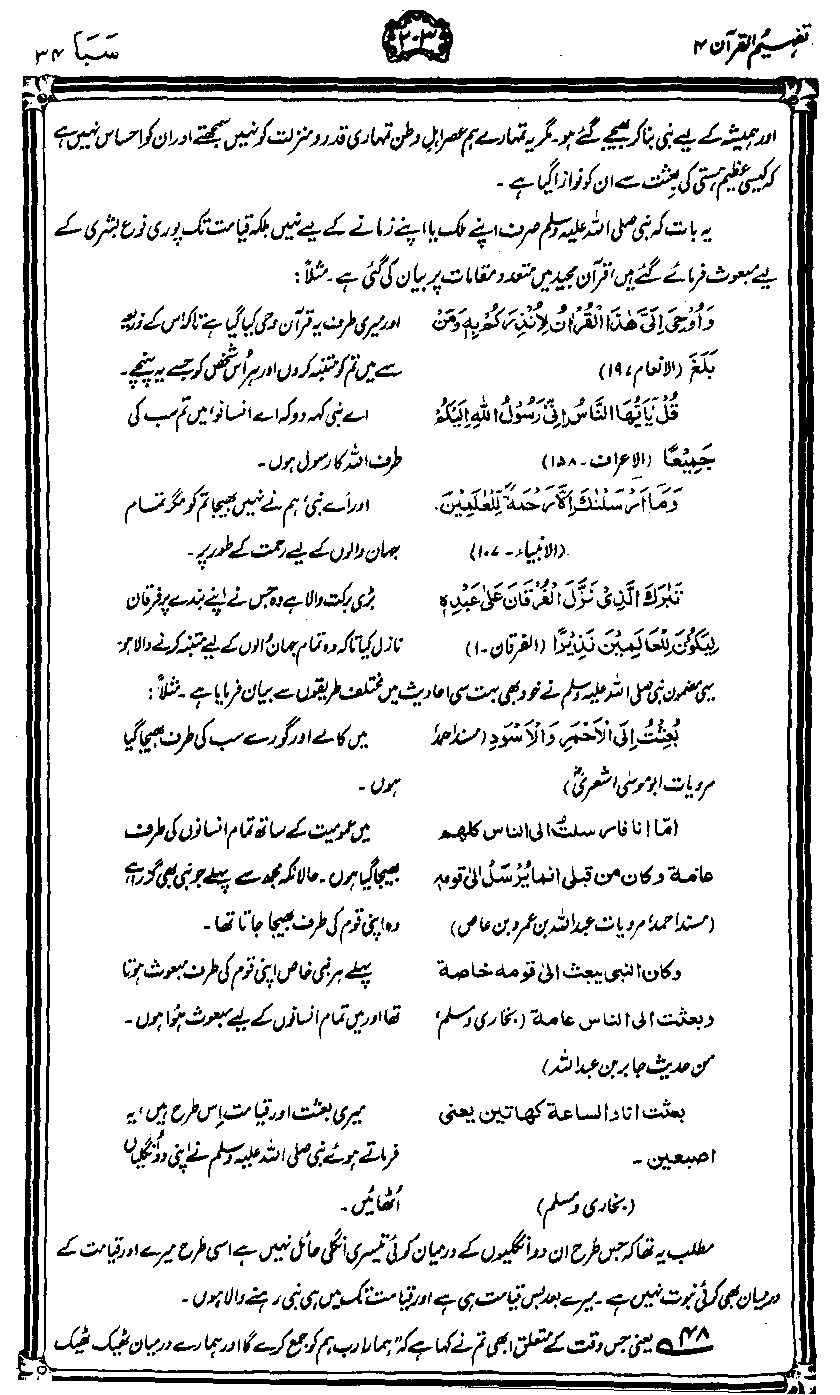 تفہیم القرآن ۴
۲۰۳
سَبَا ۳۴
اور ہمیشہ کے لیے نبی بنا کر بھیجے گئے ہو۔ مگر یہ تمہارے ہم عصر اہلِ وطن تمہاری قدر و منزلت کو نہیں سمجھتے اور ان کو احساس نہیں ہے
کہ کیسی عظیم ہستی کی بعثت سے ان کو نوازا گیا ہے۔
یہ بات کہ نبی صلی اللہ علیہ وسلم صرف اپنے ملک یا اپنے زمانے کے لیے نہیں بلکہ قیامت تک پوری نوعِ بشری کے
لیے مبعوث فرمائے گئے ہیں، قرآن مجید میں متعدد مقامات پر بیان کی گئی ہے۔ مثلاً:
وَاُوْحِیَ اِلَیَّ هٰذَا الْقُرْاٰنُ لِاُنْذِرَكُمْ بِهٖ وَمَنْ
بَلَغَ (الانعام، ۱۹)
اور میری طرف یہ قرآن وحی کیا گیا ہے تاکہ اس کے ذریعہ
سے میں تم کو متنبہ کروں اور ہر اُس شخص کو جسے یہ پہنچے۔
قُلْ یٰۤاَیُّهَا النَّاسُ اِنِّیْ رَسُوْلُ اللهِ اِلَیْكُمْ
جَمِیْعًا (الاعراف۔ ۱۵۸)
اے نبی کہہ دو کہ اے انسانو! میں تم سب کی
طرف اللہ کا رسول ہوں۔
وَمَاۤ اَرْسَلْنٰكَ اِلَّا رَحْمَةً لِّلْعٰلَمِیْنَ۔
(الانبیاء۔ ۱۰۷)
اور اے نبی، ہم نے نہیں بھیجا تم کو مگر تمام
جہان والوں کے لیے رحمت کے طور پر۔
تَبٰرَكَ الَّذِیْ نَزَّلَ الْفُرْقَانَ عَلٰی عَبْدِهٖ
لِیَكُوْنَ لِلْعَالَمِیْنَ نَذِیْرًا (الفرقان۔ ۱)
بڑی برکت والا ہے وہ جس نے اپنے بندے پر فرقان
نازل کیا تاکہ وہ تمام جہان والوں کے لیے متنبہ کرنے والا ہو۔
یہی مضمون نبی صلی اللہ علیہ وسلم نے خود بھی بہت سی احادیث میں مختلف طریقوں سے بیان فرمایا ہے۔ مثلاً:
بُعِثْتُ اِلَی الْاَحْمَرِ وَالْاَسْوَدِ (مسند احمد،
مرویات ابو موسیٰ اشعریؓ)
میں کالے اور گورے سب کی طرف بھیجا گیا
ہوں۔
امّا انا فارسلتُ الی الناس کلھم
عامۃ وکان من قبلی انما یُرْسَلُ الیٰ قومہ
(مسند احمد، مرویات عبداللہ بن عمرو بن عاص)
میں عمومیت کے ساتھ تمام انسانوں کی طرف
بھیجا گیا ہوں۔ حالانکہ مجھ سے پہلے جو نبی بھی گزرا ہے
وہ اپنی قوم کی طرف بھیجا جاتا تھا۔
وکان النبی یبعث الی قومہ خاصۃ
وبعثت الی الناس عامۃ (بخاری ومسلم،
من حدیث جابر بن عبداللہ)
پہلے ہر نبی خاص اپنی قوم کی طرف مبعوث ہوتا
تھا اور میں تمام انسانوں کے لیے مبعوث ہُوا ہوں۔
بعثت انا والساعۃ کھاتین یعنی
اصبعین۔
(بخاری ومسلم)
میری بعثت اور قیامت اِس طرح ہیں، یہ
فرماتے ہوئے نبی صلی اللہ علیہ وسلم نے اپنی دو اُنگلیاں
اُٹھائیں۔
مطلب یہ تھا کہ جس طرح ان دو انگلیوں کے درمیان کوئی تیسری انگلی حائل نہیں ہے اسی طرح میرے اور قیامت کے
درمیان بھی کوئی نبوت نہیں ہے۔ میرے بعد بس قیامت ہی ہے اور قیامت تک میں ہی نبی رہنے والا ہوں۔
۴۸ یعنی جس وقت کے متعلق ابھی تم نے کہا ہے کہ "ہمارا رب ہم کو جمع کرے گا اور ہمارے درمیان ٹھیک ٹھیک